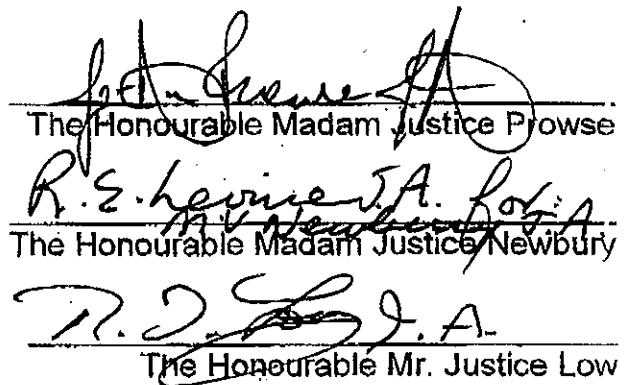 Prowse JA
The Honourable Madam Justice Prowse
R. E. Levine J.A. for
M V Newbury J A
The Honourable Madam Justice Newbury
R. J. Low J. A.
The Honourable Mr. Justice Low